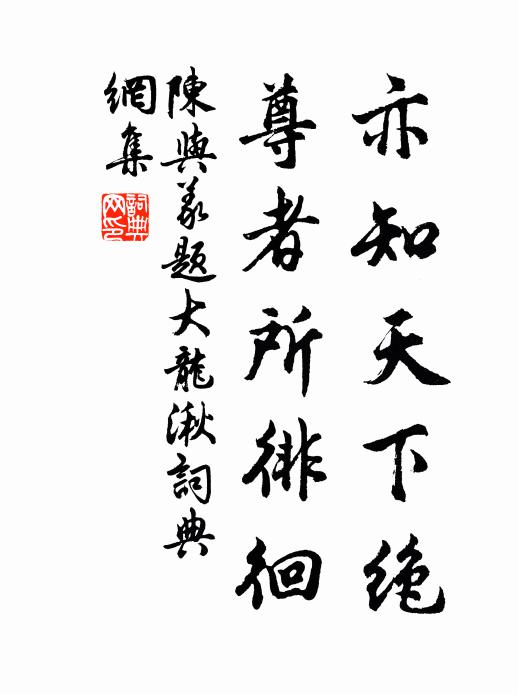 亦知天下绝
尊者所徘徊
陳與義题大龍湫詞典
網集
詞典网印